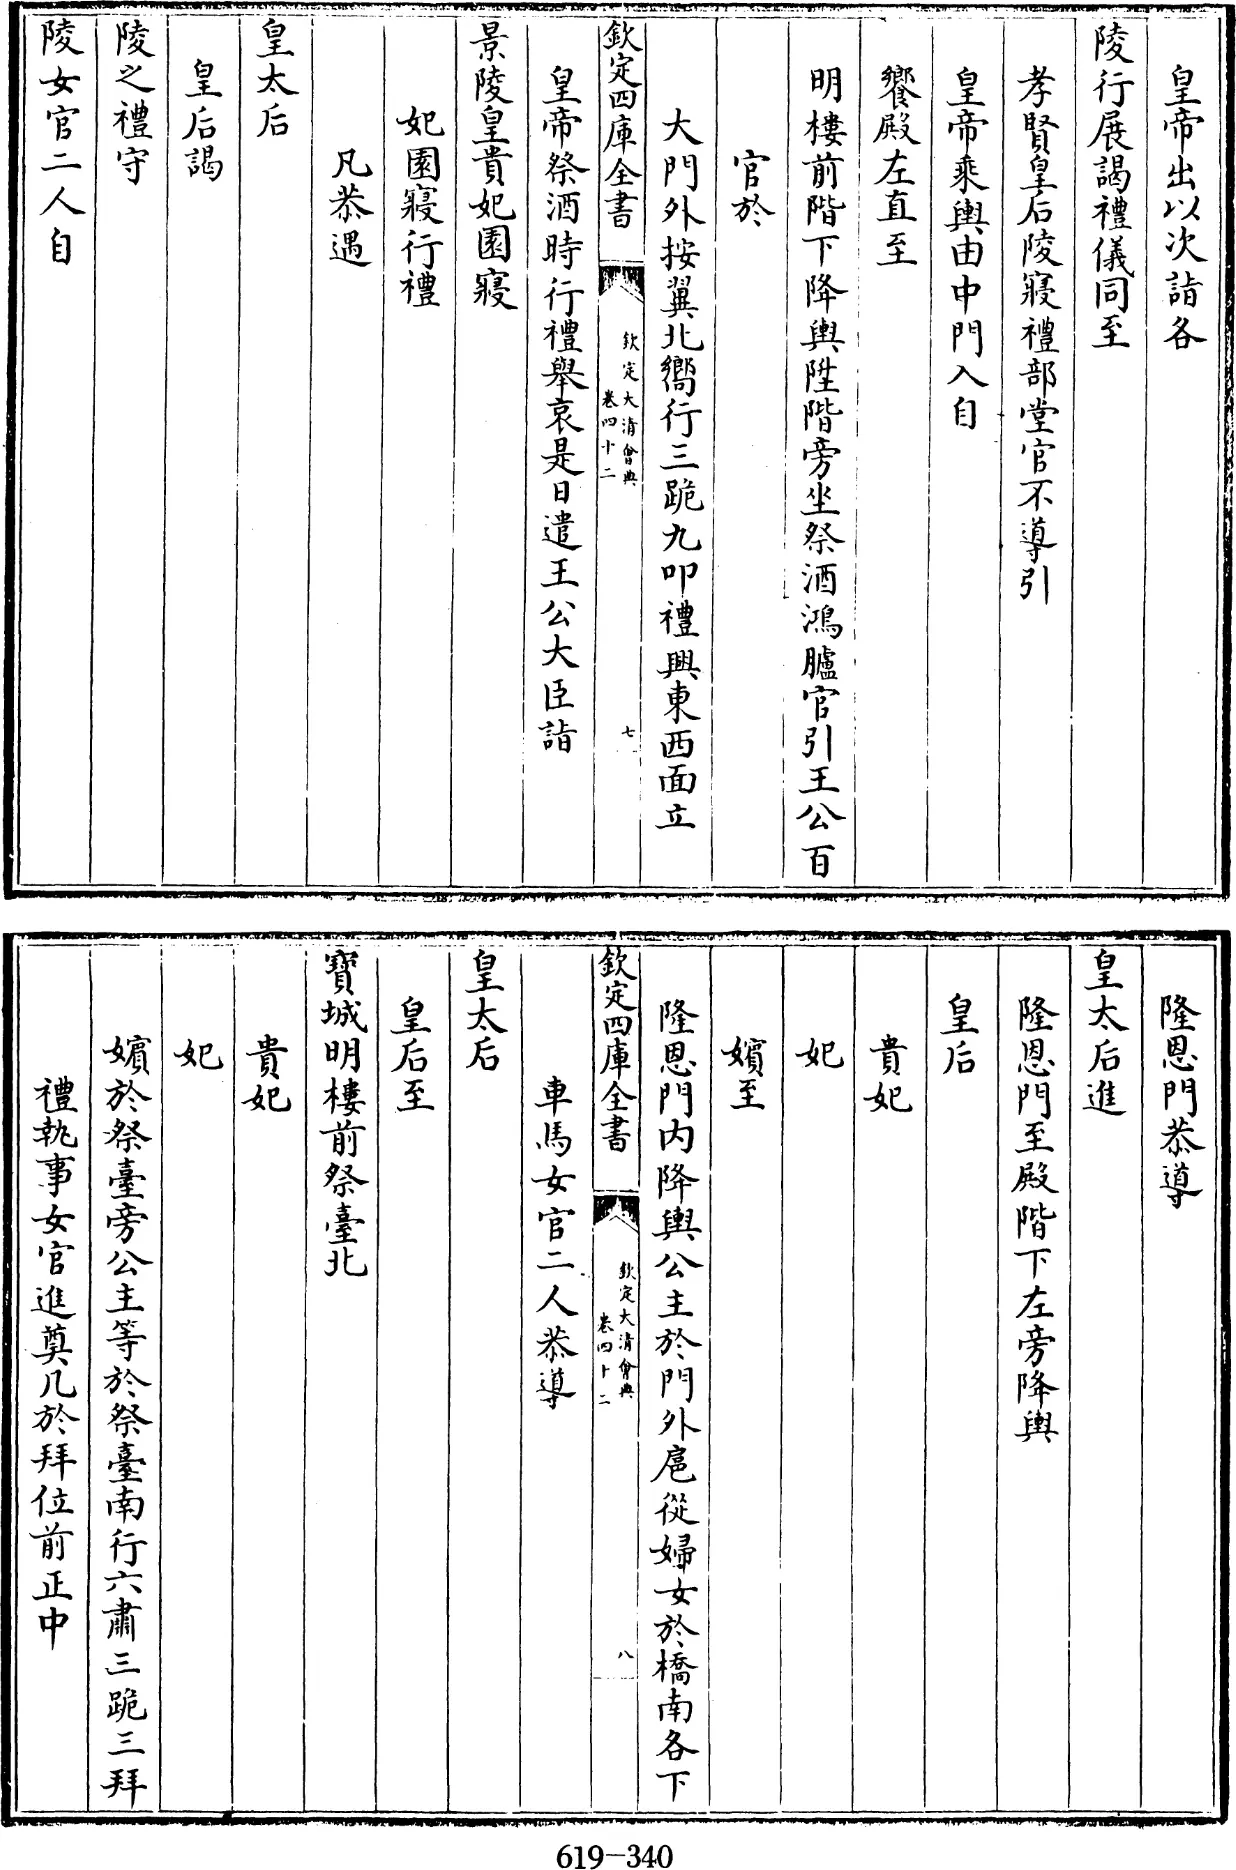 皇帝出以次詣各
陵行展謁禮儀同至
孝賢皇后陵寢禮部堂官不導引
皇帝乘輿由中門入自
饗殿左直至
明樓前階下降輿陞階旁坐祭酒鴻臚官引王公百
官於
大門外按翼北嚮行三跪九叩禮興東西面立
欽定四庫全書
欽定大清會典
卷四十二
七
皇帝祭酒時行禮舉哀是日遣王公大臣詣
景陵皇貴妃園寢
妃園寢行禮
凡恭遇
皇太后
皇后謁
陵之禮守
陵女官二人自
隆恩門恭導
皇太后進
隆恩門至殿階下左旁降輿
皇后
貴妃
妃
嬪至
隆恩門內降輿公主於門外扈從婦女於橋南各下
欽定四庫全書
欽定大清會典
卷四十二
八
車馬女官二人恭導
皇太后
皇后至
寶城明樓前祭臺北
貴妃
妃
嬪於祭臺旁公主等於祭臺南行六肅三跪三拜
禮執事女官進奠几於拜位前正中
619-340